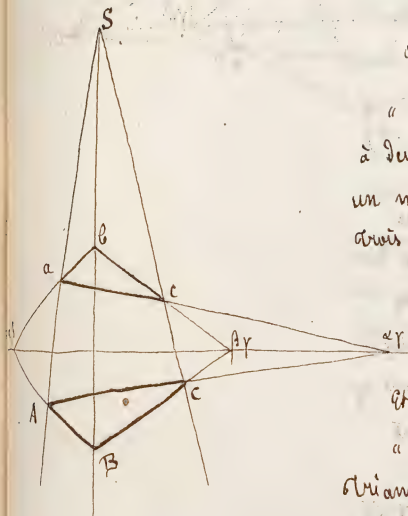 S
b
a
c
βγ
αγ
A
c
B
"
à deu
un m
trois
Et
"
trian